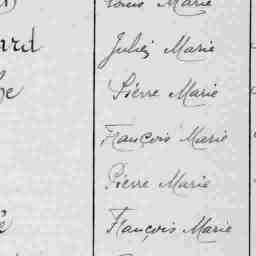 Louis Marie
Jules Marie
Pierre Marie
François Marie
Pierre Marie
François Marie